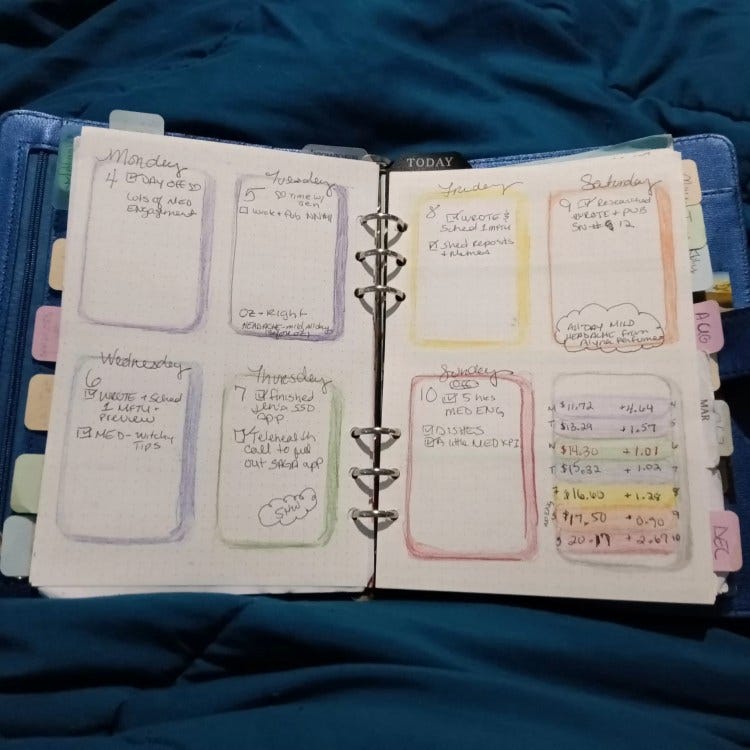 TODAY
Monday
4 ☑ DAY OFF SO
Lots of MED
Engagement
Tuesday
5 SO Time w/
Jen
☐ Work + Pub
OZ - Right
HEADACHE - mild, all day
(before OZ)
Wednesday
6
☑ WROTE + Sched
1 MFTU +
Preview
☑ MED - Witchy
Tips
Thursday
7 ☑ finished
Jen's SSD
app
☑ Telehealth
call to fill
out app
Friday
8 ☑ WROTE &
Sched 1 MFTU
☑ Shed reposts
+ Memes
Saturday
9 ☑ Researched
WROTE + PUB
SN # 12
All DAY MILD
HEADACHE from
Alyna Perfumes
Sunday
OFF
10 ☑ 5 hrs
MED ENG
☑ DISHES
☑ A little MED KPI
M $11.72 + 4.64
T $13.29 + 1.57 5
W $14.30 + 1.01 6
T $15.32 + 1.02 7
F $16.60 + 1.28 8
$17.50 + 0.90 9
20.17 + 2.67 10
AUG
MAR
DEC